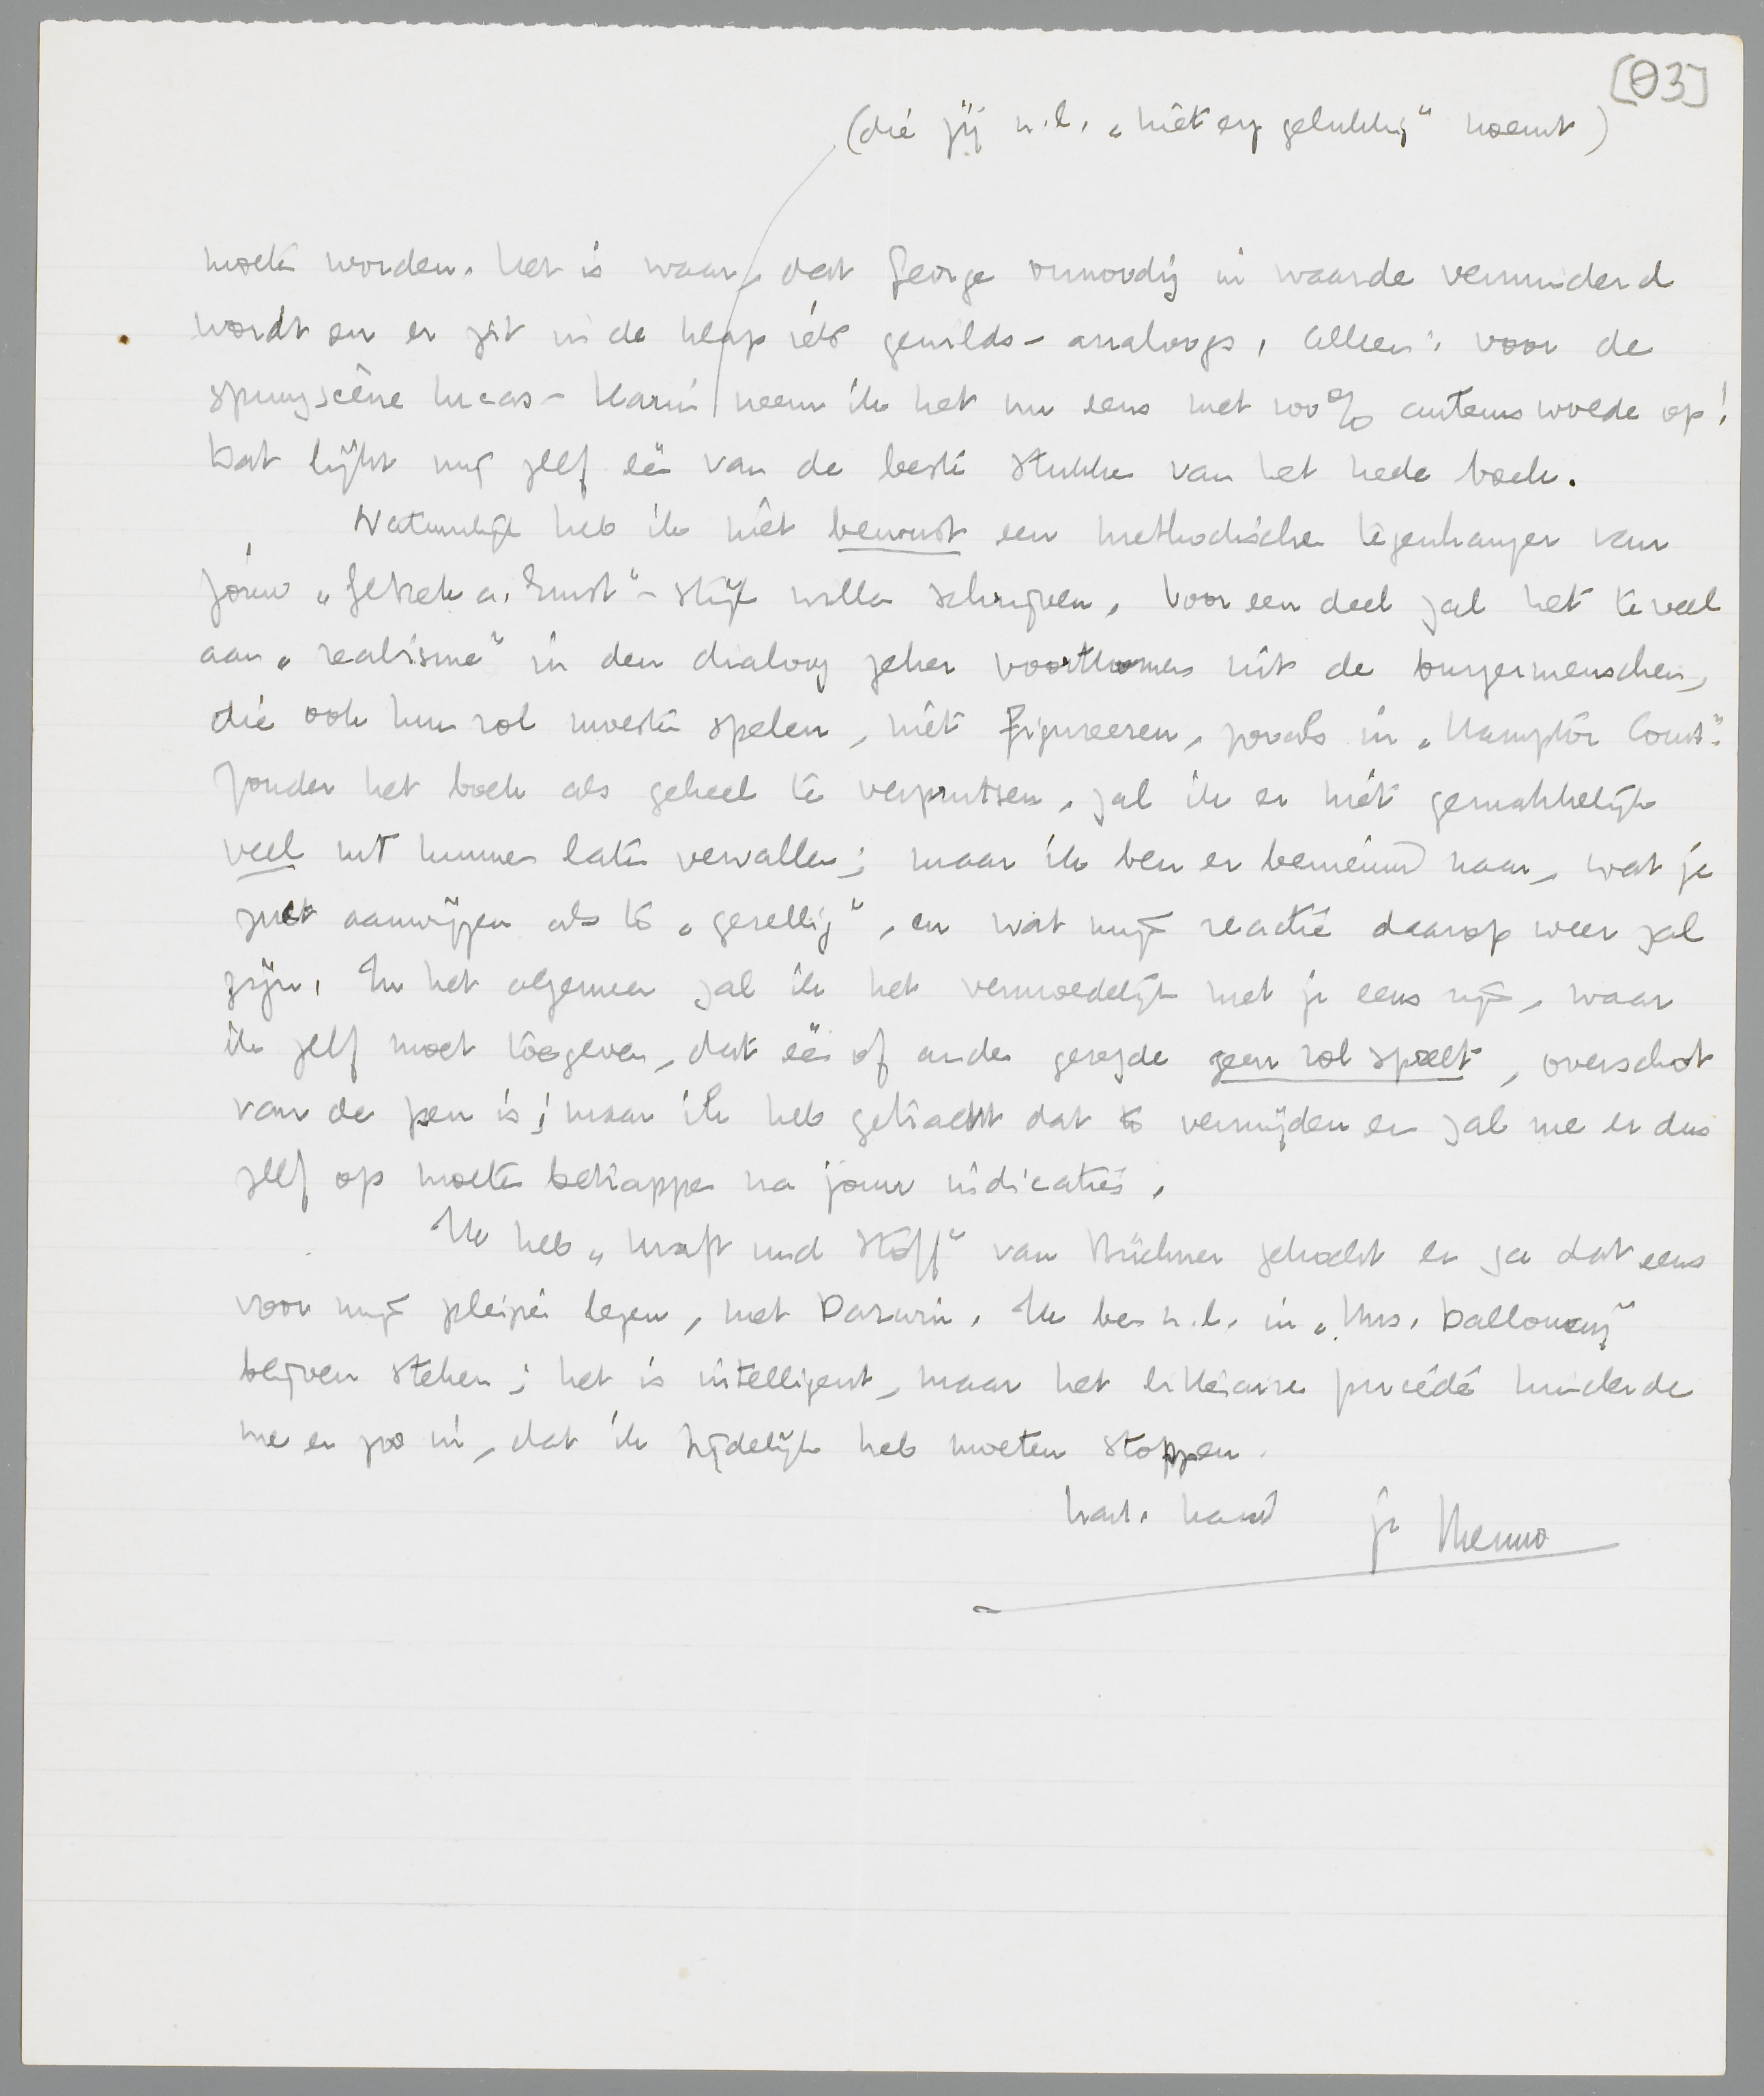 [03]
(die jij n.l. „niet erg gelukkig" noemt)
moeten worden. Het is waar, dat George onnoodig in waarde verminderd
wordt en er zit in de klap iets gewilds-analoogs. Alleen: voor de
sprongscène Lucas-Karin neem ik het nu eens met 100% auteurswoede op!
Dat lijkt mij zelf één van de beste stukken van het heele boek.
Natuurlijk heb ik niet bewust een methodische tegenhanger van
jouw „Gebrek a. Ernst"-stijl willen schrijven. Voor een deel zal het teveel
aan „realisme" in den dialoog zeker voortkomen uit de burgermenschen,
die ook hun rol moesten spelen, niet figureeren, zooals in „Hampton Court".
Zonder het boek als geheel te verprutsen, zal ik er niet gemakkelijk
veel uit kunnen laten vervallen; maar ik ben er benieuwd naar, wat je
zult aanwijzen als te „gezellig", en wat mijn reactie daarop weer zal
zijn. In het algemeen zal ik het vermoedelijk met je eens zijn, waar
ik zelf moet toegeven, dat één of ander gezegde geen rol speelt, overschot
van de pen is; maar ik heb getracht dat te vermijden en zal me er dus
zelf op moeten betrappen na jouw indicaties.
Ik heb „Kraft und Stoff" van Büchner gekocht en ga dat eens
voor mijn pleizier lezen, met Darwin. Ik ben n.l. in „Mrs. Dalloway"
blijven steken; het is intelligent, maar het litteraire procédé hinderde
me er zoo in, dat ik tijdelijk heb moeten stoppen.
hart. hand je Menno